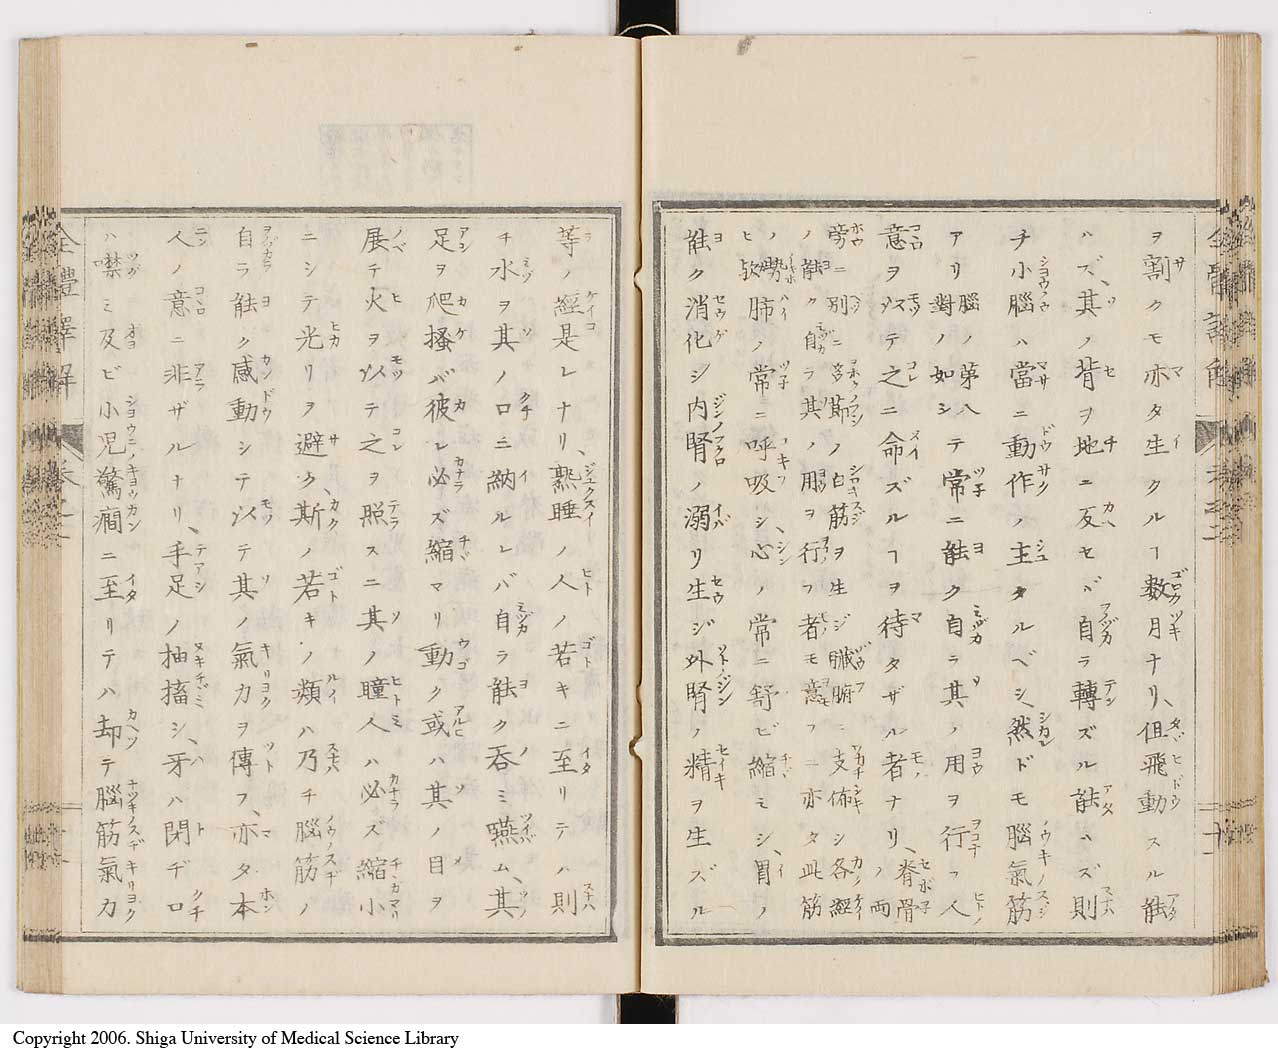 ヲ割クモ亦タ生クルヿ数月ナリ、但飛動スル能
ハズ、其ノ背ヲ地ニ反セバ自ラ轉ズル能ハズ則
チ小腦ハ當ニ動作ノ主タルベシ、然ドモ腦氣筋
アリ腦ノ第八對ノ如シテ常ニ能ク自ラ其ノ用ヲ行フ人
意ヲ以テ之ニ命ズルヿヲ待タザル者ナリ、脊骨ノ両
旁ニ別ニ節ノ白筋ヲ生ジ臟腑ニ支佈シ各經
ノ能ク自ラ其ノ用ヲ行フ者モ意フニ亦タ此筋
ノ勢ヒ故肺ノ常ニ呼吸シ、心ノ常ニ舒ビ縮ミシ、胃ノ
能ク消化シ内腎ノ溺リ生ジ外腎ノ精ヲ生ズル
等ノ經是レナリ、熟睡ノ人ノ若キニ至リテハ則
チ水ヲ其ノ口ニ納ルレバ自ラ能ク呑ミ嚥ム、其
足ヲ爬搔バ彼レ必ズ縮マリ動ク或ハ其ノ目ヲ
展テ火ヲ以テ之ヲ照スニ其ノ瞳人ハ必ズ縮小
ニシテ光リヲ避ク、斯ノ若キノ類ハ乃チ腦筋ノ
自ラ能ク感動シテ以テ其ノ氣力ヲ傳フ、亦タ本
人ノ意ニ非ザルナリ、手足ノ抽搐シ、牙ハ閉ヂ口
ハ噤ミ及ビ小児驚癇ニ至リテハ却テ腦筋氣力
全體譯解
卷之二
Copyright 2006. Shiga University of Medical Science Library